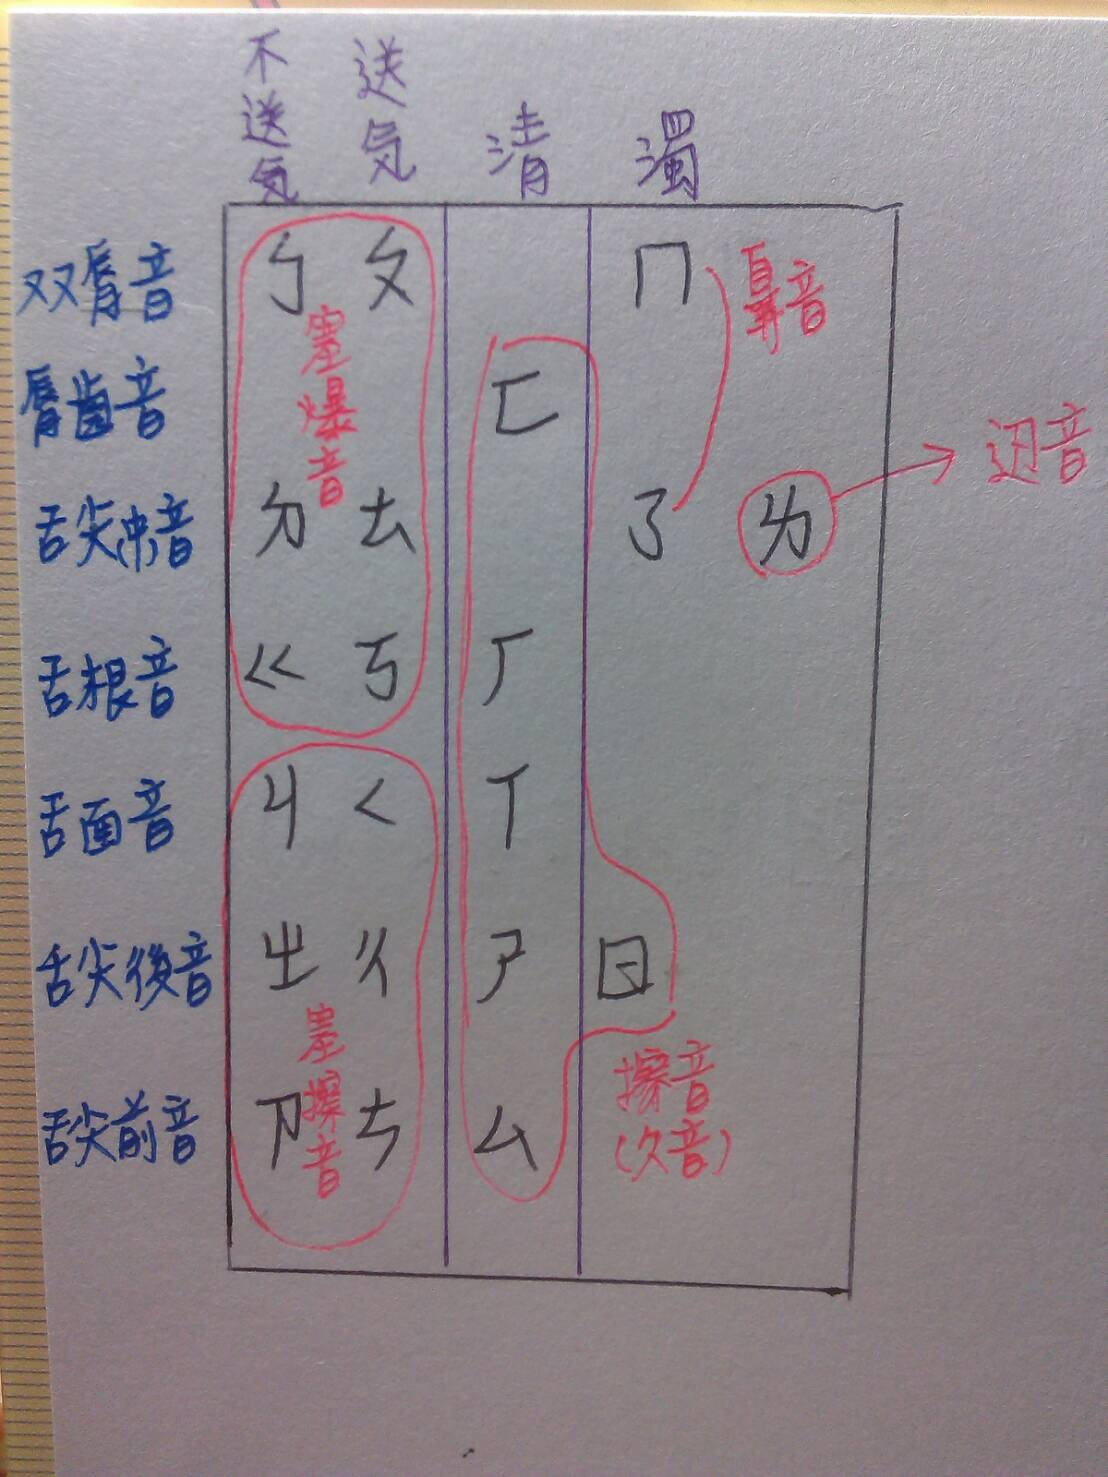 不送気 送気 清 濁
双脣音 ㄅ ㄆ ㄇ 鼻音
塞爆音
脣齒音 ㄈ
舌尖中音 ㄉ ㄊ ㄋ ㄌ
舌根音 ㄍ ㄎ ㄏ
舌面音 ㄐ ㄑ ㄒ
舌尖後音 ㄓ ㄔ ㄕ ㄖ
塞擦音
擦音
(久音)
舌尖前音 ㄗ ㄘ ㄙ